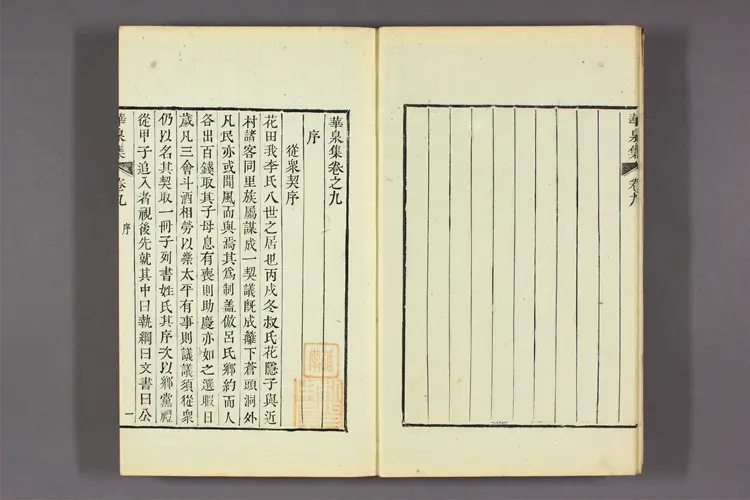 華泉集卷之九
序
從衆契序
花田我李氏八世之居也丙戌冬叔氏花隱子與近
村諸客同里族屬謀成一契議旣成籬下蒼頭洞外
凡民亦或聞風而與焉其爲制盖倣呂氏鄕約而人
各出百錢取其子母息有喪則助慶亦如之選暇日
歲凡三會斗酒相勞以樂太平有事則議議須從衆
仍以名其契取一冊子列書姓氏其序次以鄕黨禮
從甲子追入者視後先就其中曰執綱曰文書曰公
華泉集 卷九 序 一
華泉集 卷九